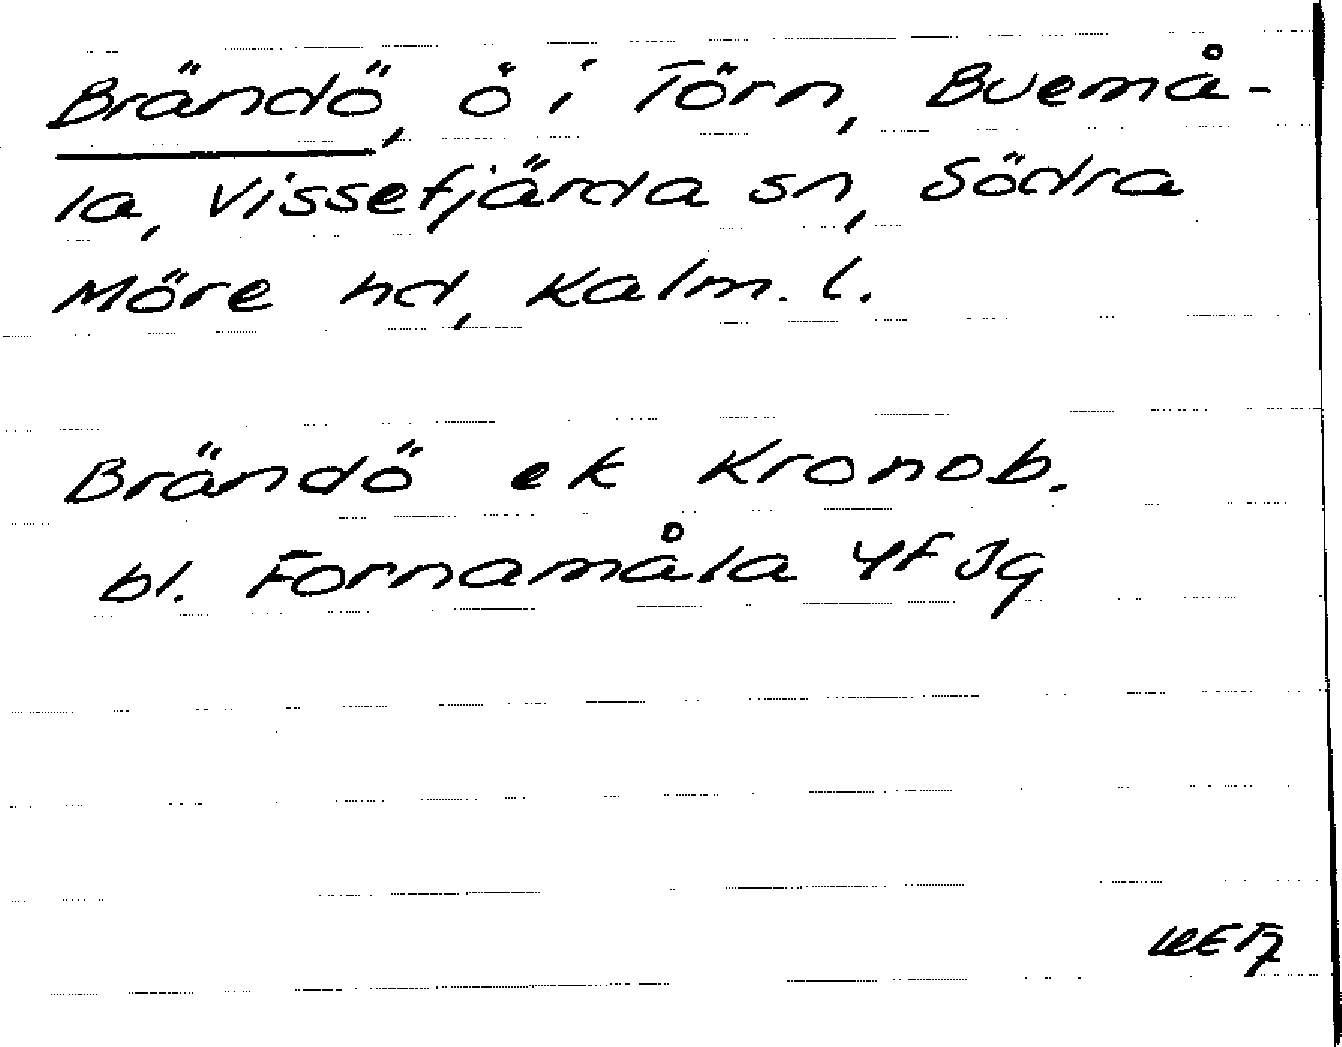 Brändö, ö i Törn, Buemå-
la, Vissefjärda sn, Södra
Möre hd, Kalm. l.
Brändö ek Kronob.
bl. Fornamåla 4f Jg